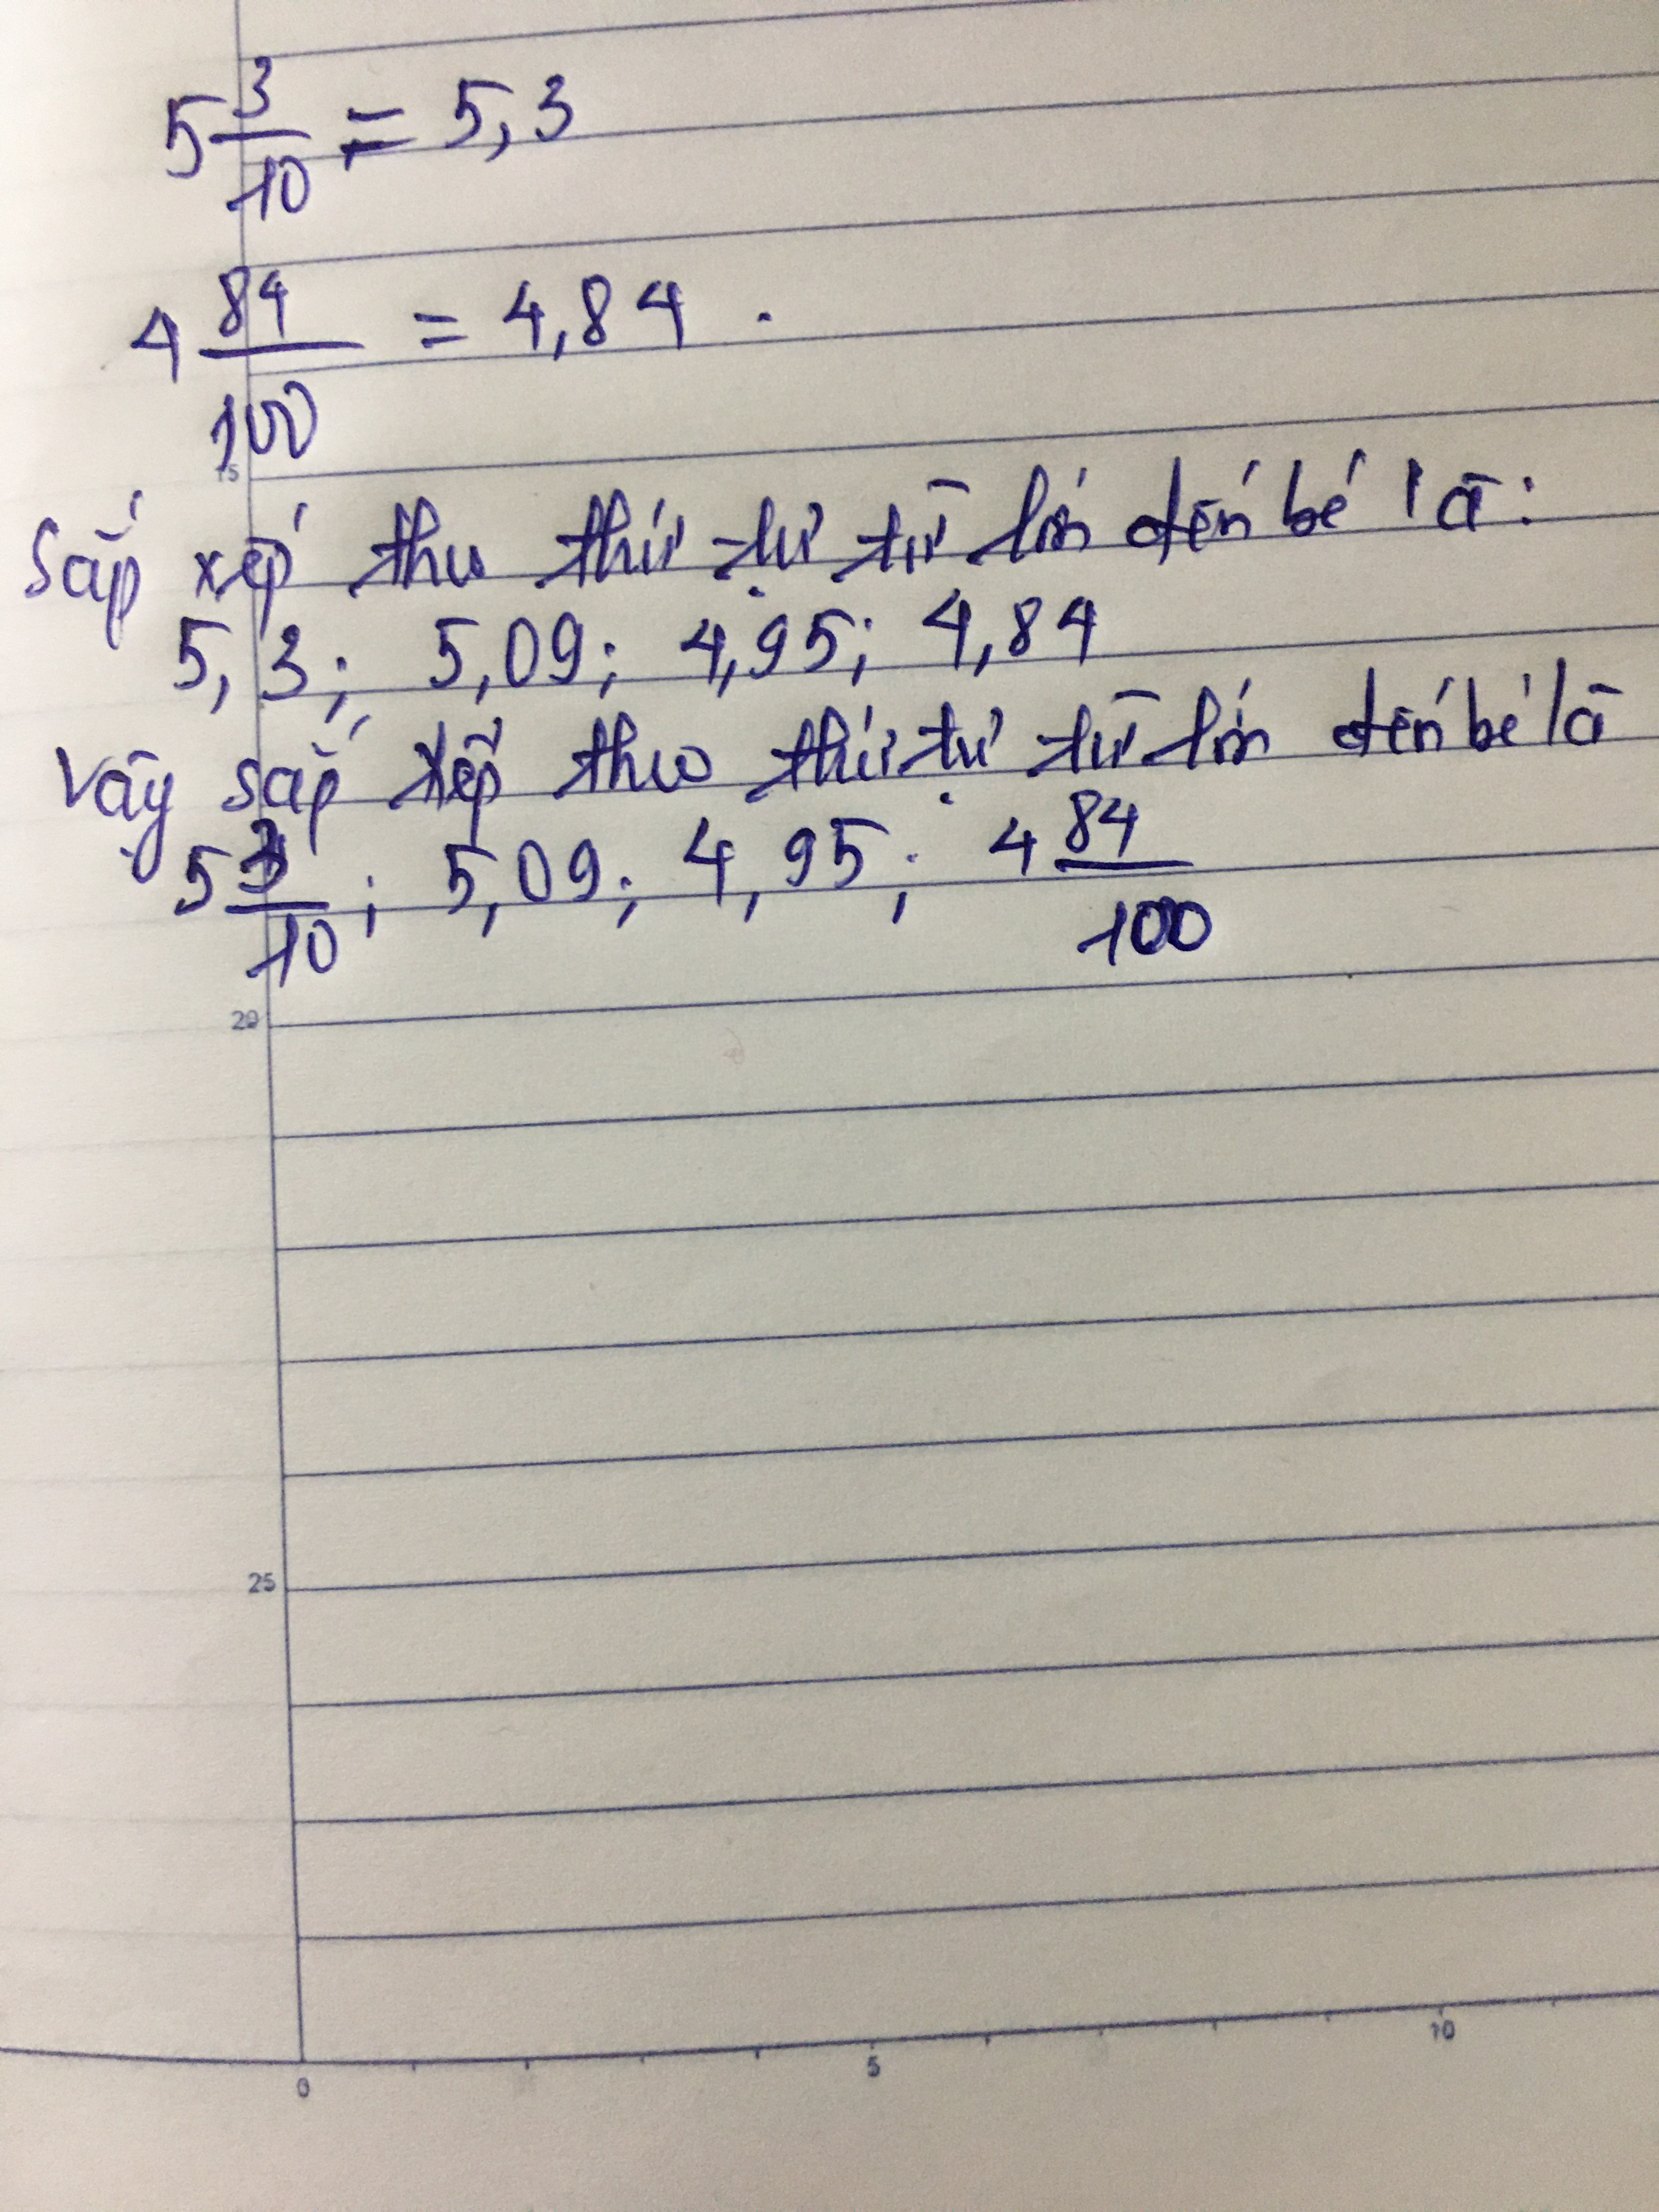 5 3/10 = 5,3
4 84/100 = 4,84.
15
Sắp xếp theo thứ tự từ lớn đến bé là:
5,3; 5,09; 4,95; 4,84
Vậy sắp xếp theo thứ tự từ lớn đến bé là
5 3/10; 5,09; 4,95; 4 84/100
20
25
0 5 10